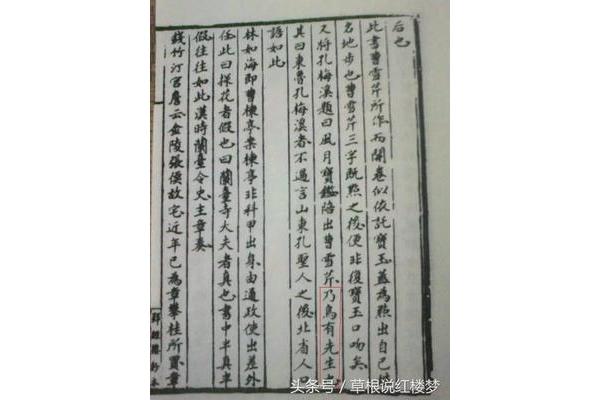 后也
此書曹雪芹所作而開卷似依託寶玉蓋為點出自己姓
名地步也曹雪芹三字既點之後便非復寶玉口吻矣
又將孔梅溪題曰風月寶鑑陪出曹雪芹乃烏有先生也
其曰東魯孔梅溪者不過言山東孔聖人之後北省人口
語如此
林如海即曹楝亭案楝亭非科甲出身由通政使出差外
任此曰探花者假也曰蘭臺寺大夫者真也書中半真半
假往往如此漢時蘭臺令史主章奏
錢竹汀宮詹云金陵張侯故宅近年已為章攀桂所買章
頭条号 / 草根说红楼梦